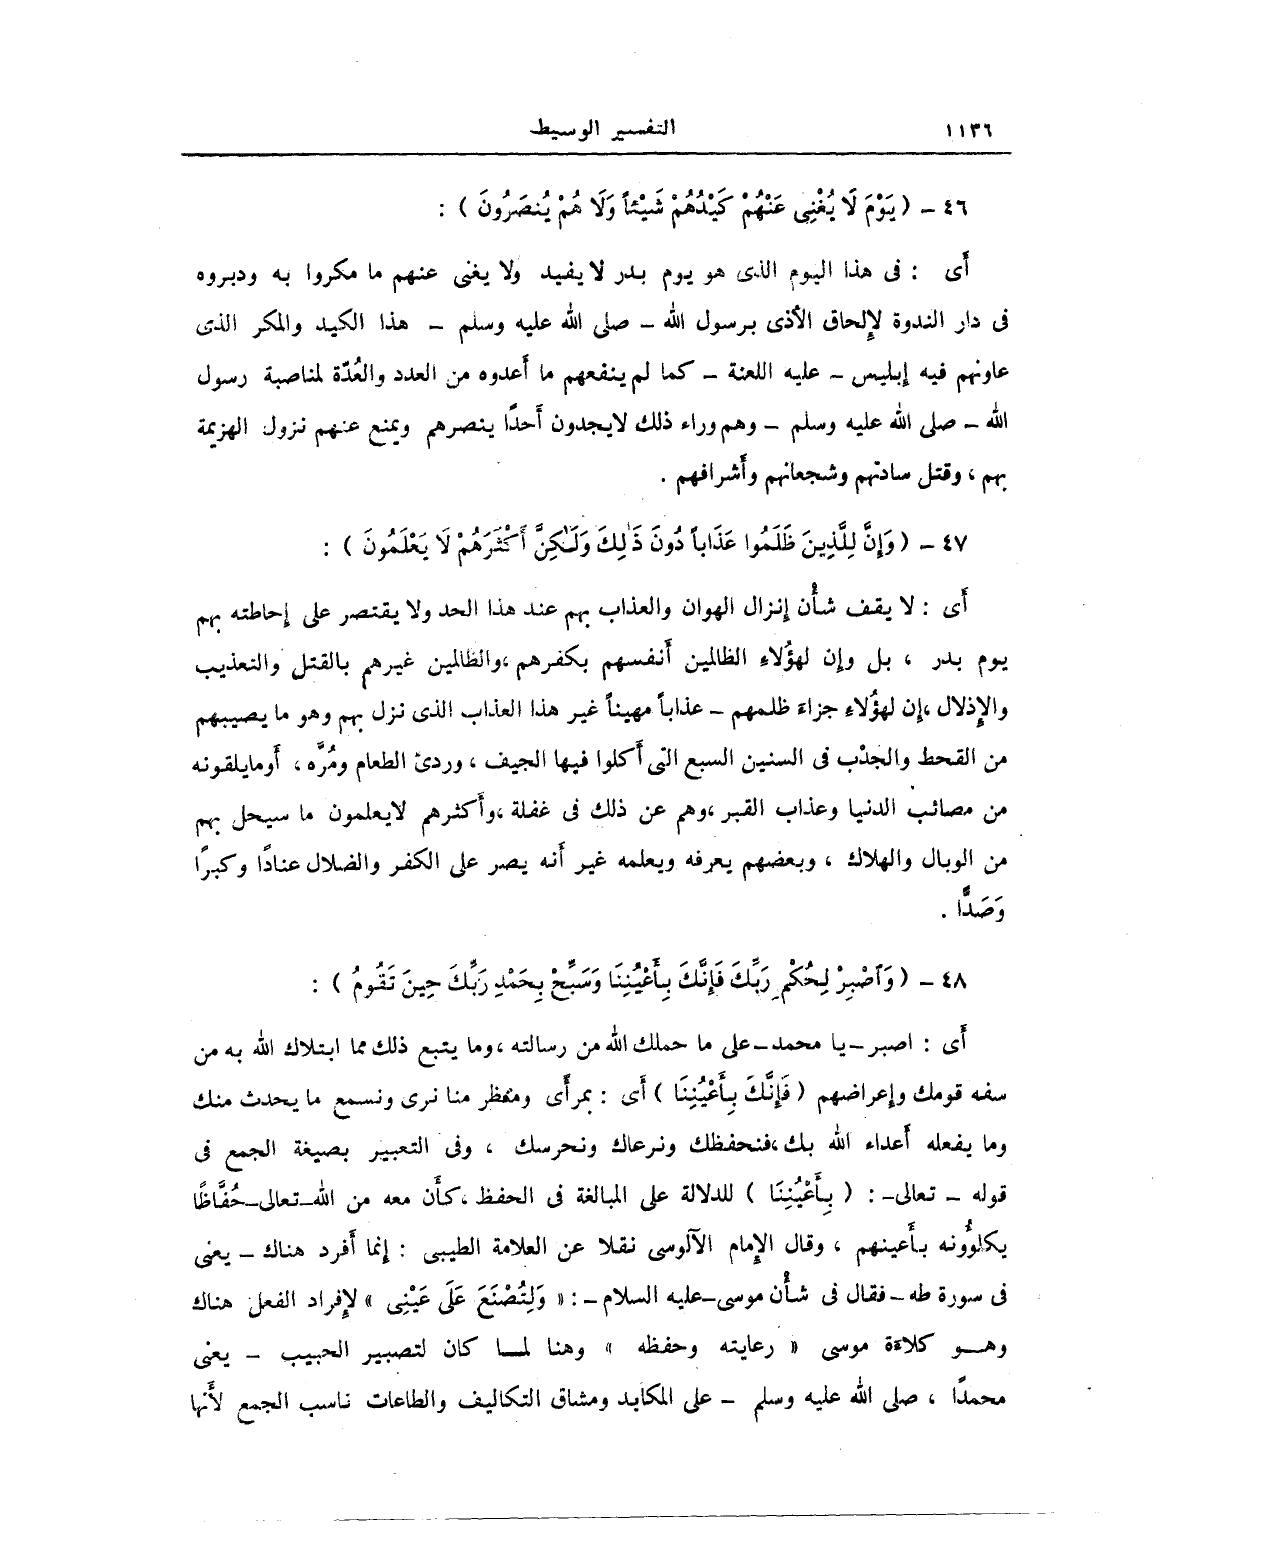 ١١٣٦ التفسير الوسيط
٤٦ – ( يَوْمَ لَا يُغْنِى عَنْهُمْ كَيْدُهُمْ شَيْئاً وَلَا هُمْ يُنصَرُونَ ) :
أَى : فى هذا اليوم الذى هو يوم بدر لا يفيد ولا يغنى عنهم ما مكروا به ودبروه
فى دار الندوة لإِلحاق الأذى برسول الله – صلى الله عليه وسلم – هذا الكيد والمكر الذى
عاونهم فيه إبليس – عليه اللعنة – كما لم ينفعهم ما أَعدوه من العدد والعُدّة لمناصبة رسول
الله – صلى الله عليه وسلم – وهم وراء ذلك لايجدون أَحدًا ينصرهم ويمنع عنهم نزول الهزيمة
بهم ، وقتل سادتهم وشجعانهم وأَشرافهم .
٤٧ – ( وَإِنَّ لِلَّذِينَ ظَلَمُوا عَذَاباً دُونَ ذَٰلِكَ وَلَـٰكِنَّ أَكْثَرَهُمْ لَا يَعْلَمُونَ ) :
أَى : لا يقف شأْن إنزال الهوان والعذاب بهم عند هذا الحد ولا يقتصر على إحاطته بهم
يوم بدر ، بل وإن لهؤُلاءِ الظالمين أَنفسهم بكفرهم ،والظالمين غيرهم بالقتل والتعذيب
والإِذلال ،إن لهؤُلاءِ جزاءَ ظلمهم – عذاباً مهيناً غير هذا العذاب الذى نزل بهم وهو ما يصيبهم
من القحط والجدْب فى السنين السبع التى أَكلوا فيها الجيف ، وردئ الطعام ومُرَّه ، أَومايلقونه
من مصائب الدنيا وعذاب القبر ،وهم عن ذلك فى غفلة ،وأَكثرهم لايعلمون ما سيحل بهم
من الوبال والهلاك ، وبعضهم يعرفه ويعلمه غير أَنه يصر على الكفر والضلال عنادًا وكبرًا
وَصَدًّا .
٤٨ – ( وَٱصْبِرْ لِحُكْمِ رَبِّكَ فَإِنَّكَ بِأَعْيُنِنَا وَسَبِّحْ بِحَمْدِ رَبِّكَ حِينَ تَقُومُ ) :
أَى : اصبر –يا محمد–على ما حملك الله من رسالته ،وما يتبع ذلك مما ابتلاك الله به من
سفه قومك وإعراضهم ( فَإِنَّكَ بِأَعْيُنِنَا ) أَى : بمرأَى ومنظر منا نرى ونسمع ما يحدث منك
وما يفعله أَعداء الله بك ،فنحفظك ونرعاك ونحرسك ، وفى التعبير بصيغة الجمع فى
قوله – تعالى– : ( بِأَعْيُنِنَا ) للدلالة على المبالغة فى الحفظ ،كأَن معه من الله–تعالى–حُفَّاظًا
يكلوُونه بأَعينهم ، وقال الإِمام الآلوسى نقلا عن العلامة الطيبى : إنما أَفرد هناك – يعنى
فى سورة طه – فقال فى شأْن موسى–عليه السلام– : « وَلِتُصْنَعَ عَلَى عَيْنِى » لإِفراد الفعل هناك
وهــو كلاءَة موسى « رعايته وحفظه » وهنا لمــا كان لتصبير الحبيب – يعنى
محمدًا ، صلى الله عليه وسلم – على المكايد ومشاق التكاليف والطاعات ناسب الجمع لأَنها